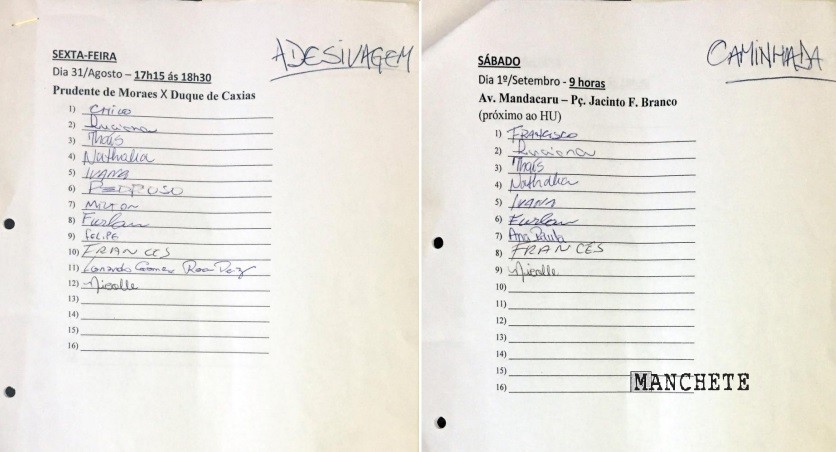 SEXTA-FEIRA
ADESIVAGEM
Dia 31/Agosto – 17h15 ás 18h30
Prudente de Moraes X Duque de Caxias
1) CHICO
2)
3) Thaís
4) Nathalia
5) IVANA
6) PEDROSO
7) MILTON
8) Furlan
9) FELIPE
10) FRANCES
11) Leonardo Gomes
12) Nicolle
13)
14)
15)
16)
SÁBADO
CAMINHADA
Dia 1º/Setembro - 9 horas
Av. Mandacaru – Pç. Jacinto F. Branco
(próximo ao HU)
1) FRANCISCO
2)
3) Thaís
4) Nathalia
5) IVANA
6) Furlan
7) Ana Paula
8) FRANCÊS
9) Nicolle
10)
11)
12)
13)
14)
15)
16)
MANCHETE